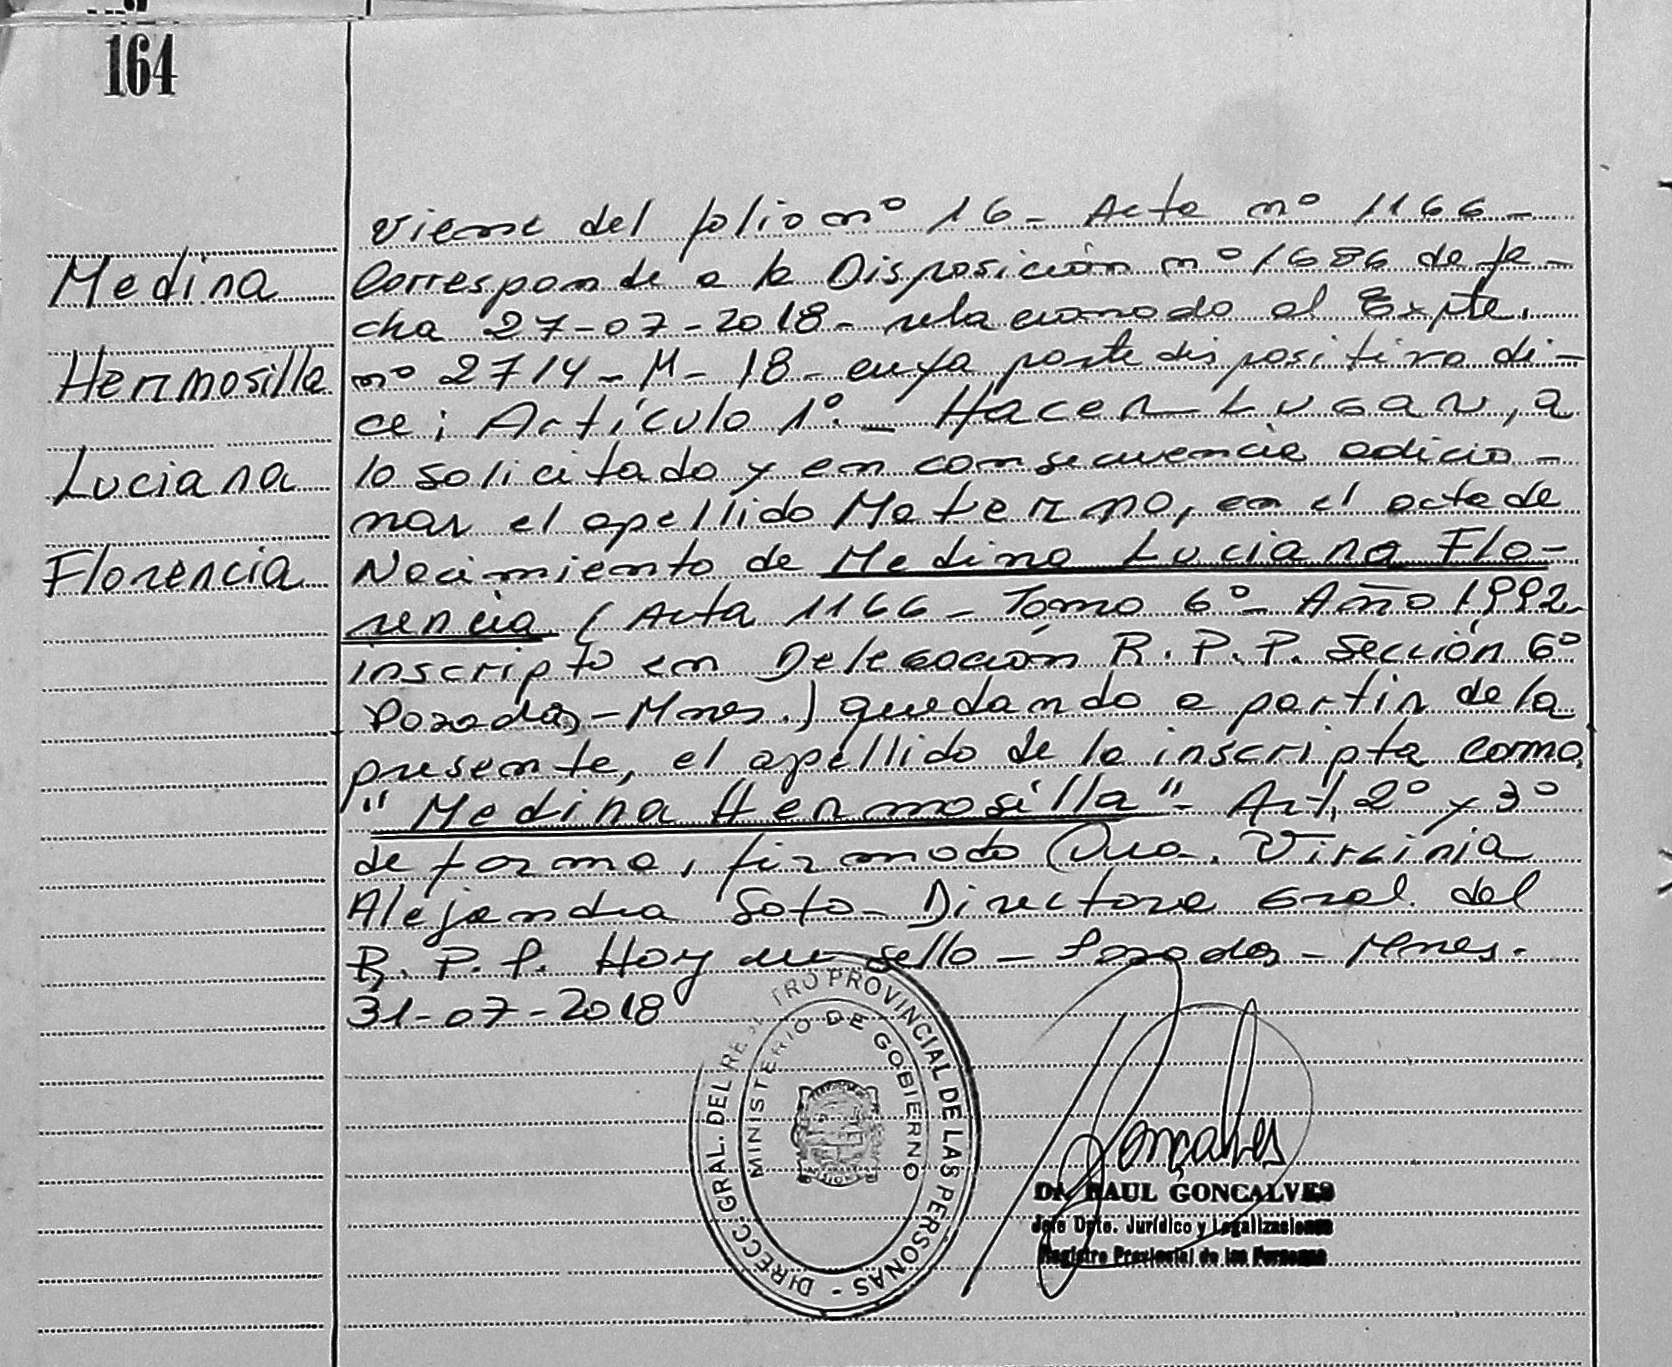 164
Viene del folio nº 16 - Acta nº 1166 -
Medina
Corresponde a la Disposición nº 1686 de fe-
cha 27-07-2018 - relacionado al Expte.
Hermosilla
nº 2714 - M - 18 - cuya parte dispositiva di-
ce: Artículo 1º. - Hacer Lugar, a
Luciana
lo solicitado y en consecuencia adicio-
nar el apellido Materno, en el acta de
Florencia
Nacimiento de Medina Luciana Flo-
rencia (Acta 1166 - Tomo 6º - Año 1992
inscripto en Delegación R.P.P. Sección 6º
Posadas, - Mnes.) quedando a partir de la
presente, el apellido de la inscripta como,
"Medina Hermosilla" - Art. 2º y 3º
de forma, firmado Dra. Virginia
Alejandra Soto - Directora Gral. del
R.P.P. Hoy un sello - Posadas - Mnes.
31-07-2018
DIRECC. GRAL. DEL RE TRO PROVINCIAL DE LAS PERSONAS -
MINISTERIO DE GOBIERNO
Gonçalves
Dr. RAUL GONCALVES
Jefe Dpto. Jurídico y Legalizaciones
Registro Provincial de las Personas